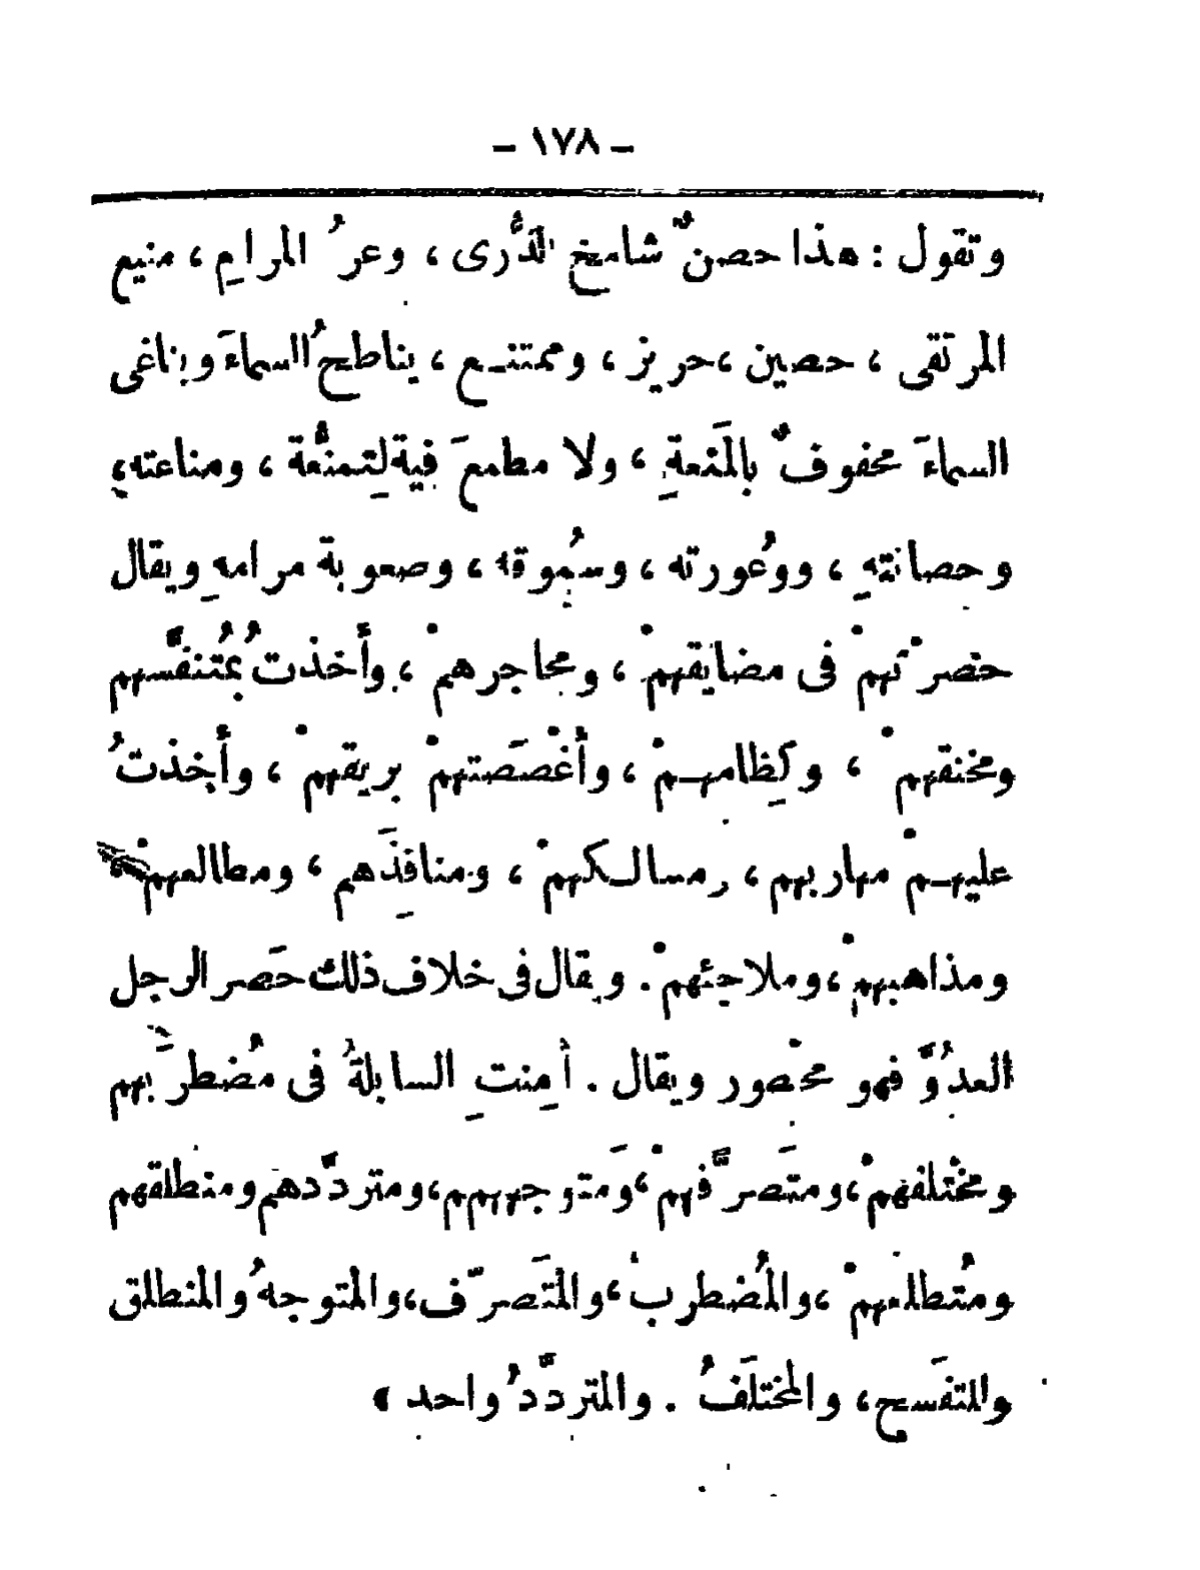 – ١٧٨ –
وتقول : هذا حصنٌ شامخ الذُّرى ، وعرُ المرامِ ، منيع
المرتقى ، حصين ، حريز ، وممتنـع ، يناطحُ السماءَ ويناغى
السماءَ محفوفٌ بالمَنعةِ ، ولا مطمعَ فيه لِتمنُّعة ، ومناعته ،
وحصانتهِ ، ووُعورته ، وسُموقه ، وصعوبة مرامهِ ويقال
حصرْتهمْ فى مضايقهمْ ، ومحاجرهمْ ، وأخذتُ بمُتنفَّسهم
ومخنقهمْ ، وكِظامهـمْ ، وأغْصَصتهمْ بريقهمْ ، وأخذتُ
عليهـمْ مهاربهم ، ومسالـكهمْ ، ومنافِذَهم ، ومطالعهمْ ،
ومذاهبهمْ ، وملاجئهمْ . ويقال فى خلاف ذلك حَصر الرجل
العدُوَّ فهو محْصور ويقال . أمِنتِ السابلةُ فى مُضطرَبهم
ومخْتلفهمْ ، ومتَصرَّفهمْ ، وَمتوجههم ، ومتردَّدهم ومنطلقهم
ومُتطلعهمْ ، والمُضطرب ، والمتَصرّف ، والمتوجهُ والمنطلق
والمتفَسح ، والمختلَفُ . والمتردَّدُ واحد ،